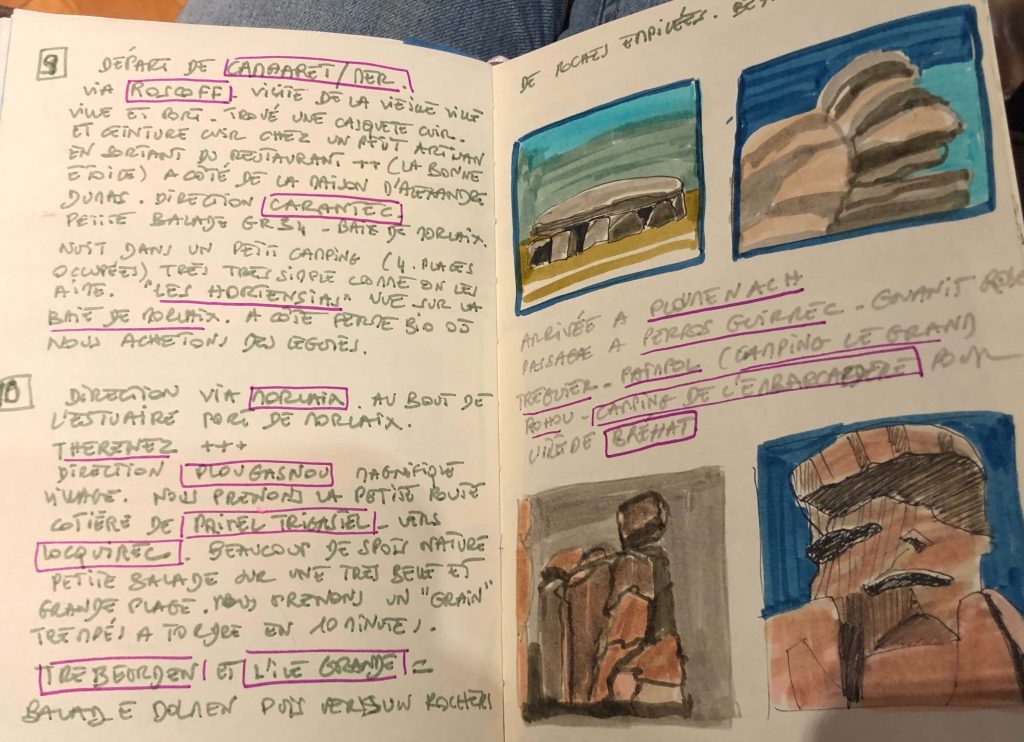 9
DÉPART DE CAMARET/MER.
VIA ROSCOFF. VISITE DE LA VIEILLE VILLE
VILLE ET PORT. TROUVÉ UNE CASQUETE CUIR.
ET CEINTURE CUIR CHEZ UN PETIT ARTISAN
EN SORTANT DU RESTAURANT ++ (LA BONNE
ETOILE) A CÔTÉ DE LA MAISON D'ALEXANDRE
DUMAS. DIRECTION CARANTEC
PETITE BALADE GR34 - BAIE DE MORLAIX
NUIT DANS UN PETIT CAMPING (4 PLACES
OCCUPÉES) TRÈS TRES SIMPLE COMME ON LES
AIME. "LES HORTENSIAS" VUE SUR LA
BAIE DE MORLAIX. A CÔTÉ FERME BIO OÙ
NOUS ACHETONS DES LEGUMES.
10
DIRECTION VIA MORLAIX. AU BOUT DE
L'ESTUAIRE PORT DE MORLAIX.
THERENEZ +++
DIRECTION PLOUGASNOU MAGNIFIQUE
VILLAGE. NOUS PRENONS LA PETITE ROUTE
COTIÈRE DE PRIMEL TRIGASTEL VERS
LOCQUIREC. BEAUCOUP DE SPOTS NATURE
PETITE BALADE SUR UNE TRES BELLE ET
GRANDE PLAGE. NOUS PRENONS UN "GRAIN"
TREMPÉS A TORDRE EN 10 MINUTES.
TREBEURDEN ET L'ILE GRANDE =
BALADE DOLMEN PUIS VERS UN ROCHERS
DE ROCHES EMPILÉES.
ARRIVÉE A PLOUMENACH
PASSAGE A PERROS GUIRREC - GRANIT ROSE
TREGUIER - PAIMPOL (CAMPING LE GRAND
ROHOU - CAMPING DE L'EMBARCADERE POUR
VISITE DE BREHAT